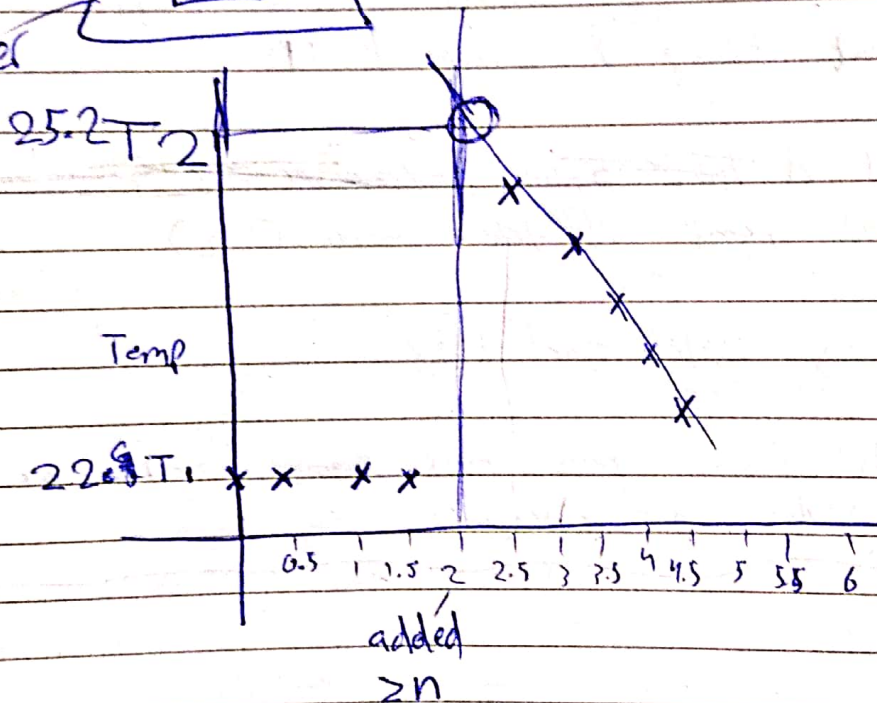 er
25.2 T2
Temp
22.9 T1
0.5 1 1.5 2 2.5 3 3.5 4 4.5 5 5.5 6
added
Zn